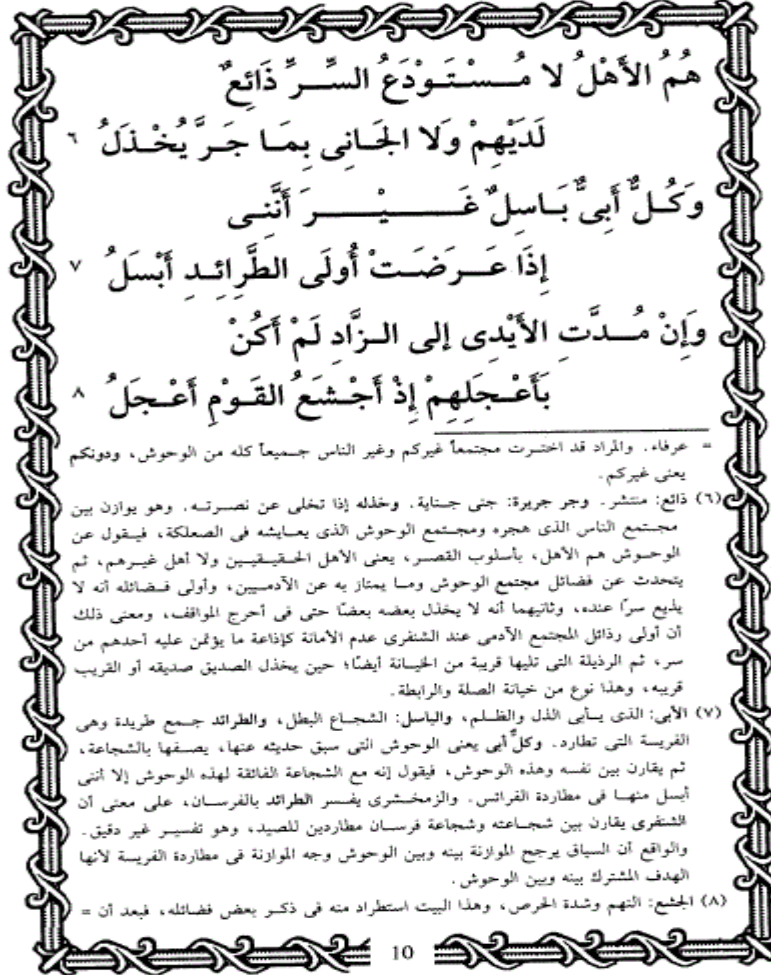 هُمُ الأَهْلُ لا مُسْتَوْدَعُ السِّرِّ ذَائِعٌ
لَدَيْهِمْ وَلا الجَانِى بِمَا جَرَّ يُخْذَلُ ٦
وَكُلٌّ أَبِىٌّ بَاسِلٌ غَيْرَ أَنَّنِى
إِذَا عَرَضَتْ أُولَى الطَّرِائِدِ أَبْسَلُ ٧
وَإِنْ مُدَّتِ الأَيْدِى إلى الزَّادِ لَمْ أَكُنْ
بَأَعْجَلِهِمْ إِذْ أَجْشَعُ القَوْمِ أَعْجَلُ ٨
= عرفاء. والمراد قد اخترت مجتمعاً غيركم وغير الناس جميعاً كله من الوحوش، ودونكم
يعنى غيركم.
(٦) ذائع: منتشر. وجر جريرة: جنى جناية. وخذله إذا تخلى عن نصرته. وهو يوازن بين
مجتمع الناس الذى هجره ومجتمع الوحوش الذى يعايشه فى الصعلكة، فيقول عن
الوحوش هم الأهل، بأسلوب القصر، يعنى الأهل الحقيقيين ولا أهل غيرهم، ثم
يتحدث عن فضائل مجتمع الوحوش وما يمتاز به عن الآدميين، وأولى فضائله أنه لا
يذيع سرّا عنده، وثانيهما أنه لا يخذل بعضه بعضًا حتى فى أحرج المواقف، ومعنى ذلك
أن أولى رذائل المجتمع الآدمى عند الشنفرى عدم الأمانة كإذاعة ما يؤتمن عليه أحدهم من
سر، ثم الرذيلة التى تليها قريبة من الخيانة أيضًا؛ حين يخذل الصديق صديقه أو القريب
قريبه، وهذا نوع من خيانة الصلة والرابطة.
(٧) الأبى: الذى يأبى الذل والظلم، والباسل: الشجاع البطل، والطرائد جمع طريدة وهى
الفريسة التى تطارد. وكلٌّ أبى يعنى الوحوش التى سبق حديثه عنها، يصفها بالشجاعة،
ثم يقارن بين نفسه وهذه الوحوش، فيقول إنه مع الشجاعة الفائقة لهذه الوحوش إلا أننى
أبسل منها فى مطاردة الفرائس. والزمخشرى يفسر الطرائد بالفرسان، على معنى أن
الشنفرى يقارن بين شجاعته وشجاعة فرسان مطاردين للصيد، وهو تفسير غير دقيق.
والواقع أن السياق يرجح الموازنة بينه وبين الوحوش وجه الموازنة فى مطاردة الفريسة لأنها
الهدف المشترك بينه وبين الوحوش.
(٨) الجشع: النهم وشدة الحرص، وهذا البيت استطراد منه فى ذكر بعض فضائله، فبعد أن =
10